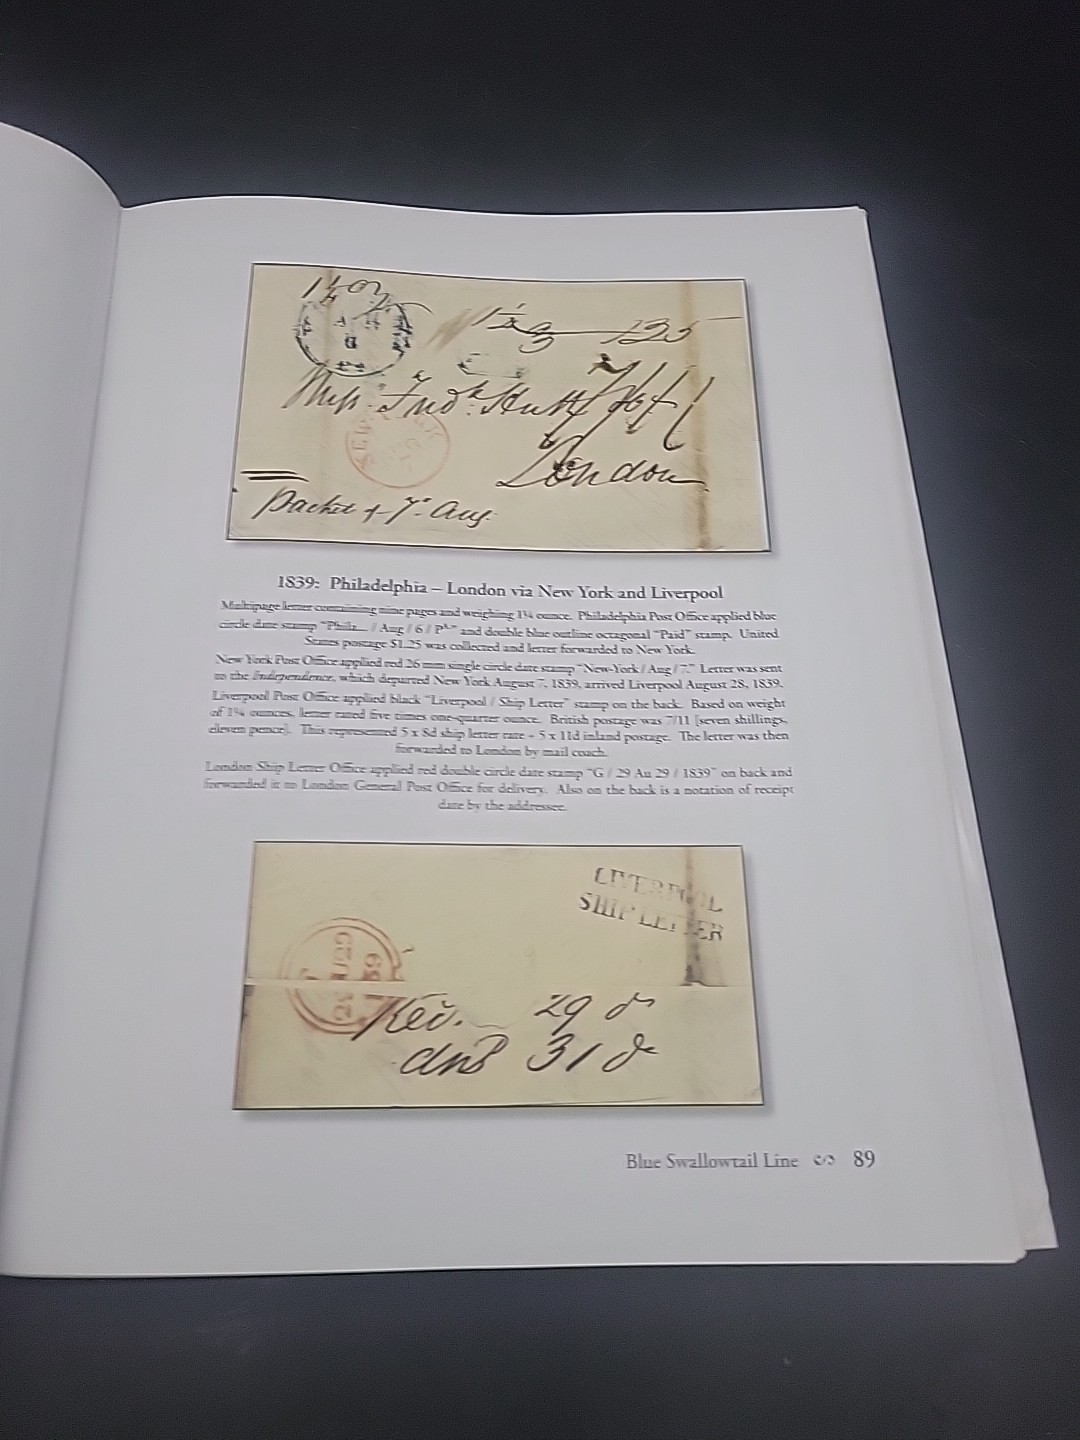 1¼ oz
125
Mess. Fred.k Huth
7/11
London
Packet of 7.th Aug.
1839: Philadelphia – London via New York and Liverpool
Multipage letter containing nine pages and weighing 1¼ ounce. Philadelphia Post Office applied blue
circle date stamp "Phila... / Aug / 6 / and double blue outline octagonal "Paid" stamp. United
States postage $1.25 was collected and letter forwarded to New York.
New York Post Office applied red 26 mm single circle date stamp "New-York / Aug / 7." Letter was sent
on the Independence, which departed New York August 7, 1839, arrived Liverpool August 28, 1839.
Liverpool Post Office applied black "Liverpool / Ship Letter" stamp on the back. Based on weight
of 1¼ ounces, letter rated five times one-quarter ounce. British postage was 7/11 [seven shillings,
eleven pence]. This represented 5 x 8d ship letter rate + 5 x 11d inland postage. The letter was then
forwarded to London by mail coach.
London Ship Letter Office applied red double circle date stamp "G / 29 Au 29 / 1839" on back and
forwarded it to London General Post Office for delivery. Also on the back is a notation of receipt
date by the addressee.
LIVERPOOL
SHIP LETTER
29 AU 29
1839
Rec. 29 do
ansd 31 do
Blue Swallowtail Line 89